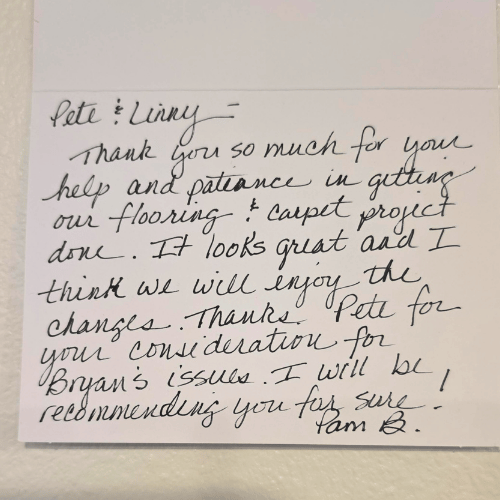 Pete & Linny -
Thank you so much for your
help and patiance in getting
our flooring & carpet project
done. It looks great and I
think we will enjoy the
changes. Thanks Pete for
your consideration for
Bryan's issues. I will be
recommending you for sure!
Pam B.